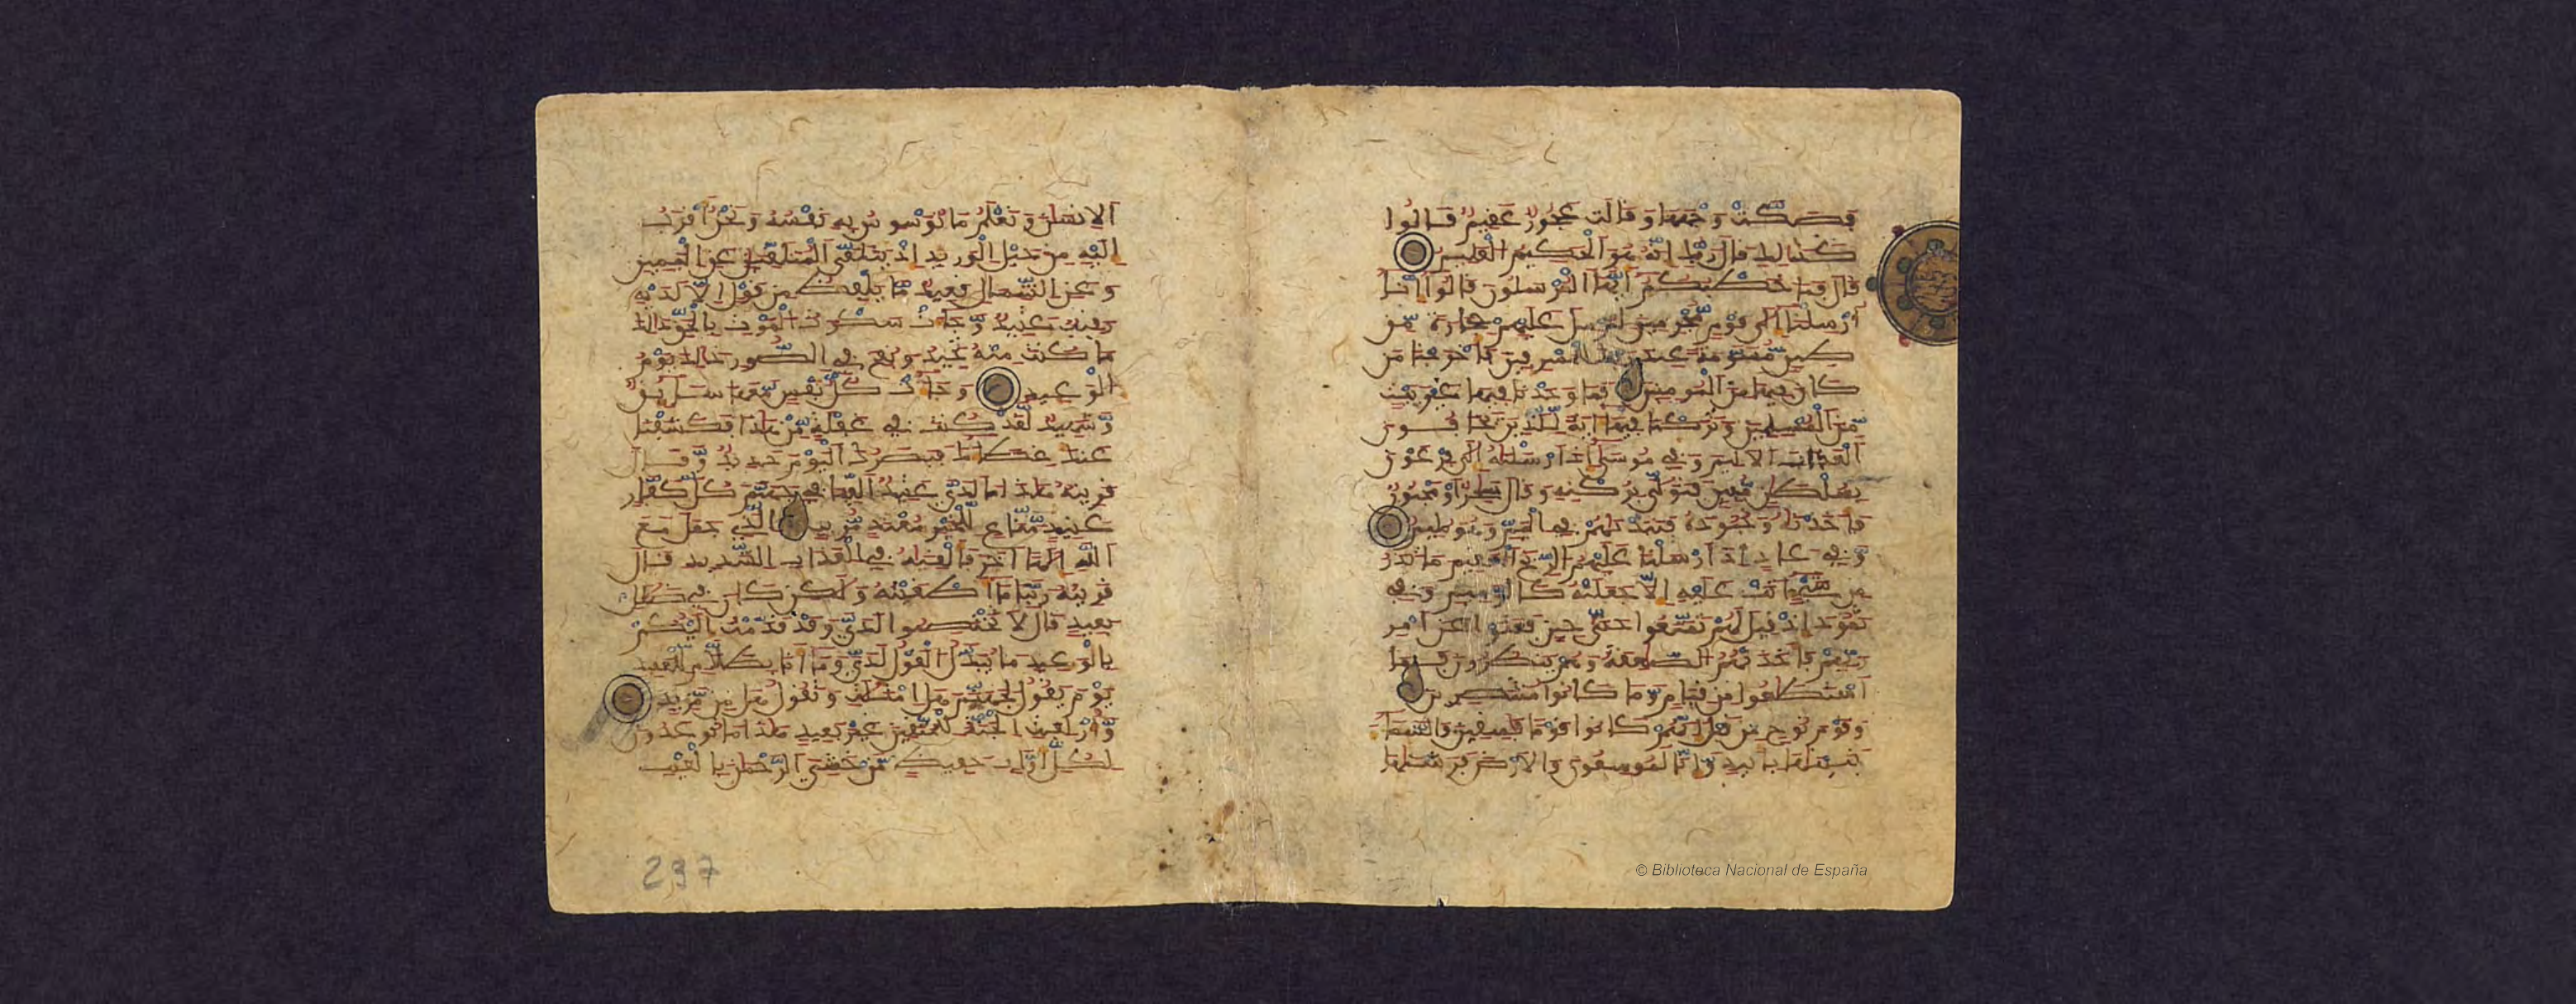 فَصَكَّتْ وَجْهَهَا وَقَالَتْ عَجُوزٌ عَقِيمٌ قَالُوا
كَذَٰلِكِ قَالَ رَبُّكِ إِنَّهُ هُوَ اَلْحَكِيمُ اُلْعَلِيمُ
قَالَ فَمَا خَطْبُكُمْ أَيُّهَا اَلْمُرْسَلُونَ قَالُوا إِنَّا
أُرْسِلْنَا إِلَىٰ قَوْمٍ مُّجْرِمِينَ لِنُرْسِلَ عَلَيْهِمْ حِجَارَةً مِّن
طِينٍ مُّسَوَّمَةً عِندَ رَبِّكَ لِلْمُسْرِفِينَ فَأَخْرَجْنَا مَن
كَانَ فِيهَا مِنَ اَلْمُومِنِينَ فَمَا وَجَدْنَا فِيهَا غَيْرَ بَيْتٍ
مِّنَ اَلْمُسْلِمِينَ وَتَرَكْنَا فِيهَا ءَايَةً لِّلَّذِينَ يَخَافُونَ
اَلْعَذَابَ اَلْأَلِيمَ وَفِي مُوسَىٰ إِذَ ارْسَلْنَٰهُ إِلَىٰ فِرْعَوْنَ
بِسُلْطَٰنٍ مُّبِينٍ فَتَوَلَّىٰ بِرُكْنِهِ وَقَالَ سَٰحِرٌ أَوْ مَجْنُونٌ
فَأَخَذْنَٰهُ وَجُنُودَهُ فَنَبَذْنَٰهُمْ فِي اِلْيَمِّ وَهُوَ مُلِيمٌ
وَفِي عَادٍ إِذَ ارْسَلْنَا عَلَيْهِمُ اُلرِّيحَ اَلْعَقِيمَ مَا تَذَرُ
مِن شَيْءٍ أَتَتْ عَلَيْهِ إِلَّا جَعَلَتْهُ كَالرَّمِيمِ وَفِي
ثَمُودَ إِذْ قِيلَ لَهُمْ تَمَتَّعُوا حَتَّىٰ حِينٍ فَعَتَوْا عَنَ امْرِ
رَبِّهِمْ فَأَخَذَتْهُمُ اُلصَّٰعِقَةُ وَهُمْ يَنظُرُونَ فَمَا
اَسْتَطَٰعُوا مِن قِيَامٍ وَمَا كَانُوا مُنتَصِرِينَ
وَقَوْمَ نُوحٍ مِّن قَبْلُ إِنَّهُمْ كَانُوا قَوْمًا فَٰسِقِينَ وَالسَّمَاءَ
بَنَيْنَٰهَا بِأَيْيدٍ وَإِنَّا لَمُوسِعُونَ وَالْأَرْضَ فَرَشْنَٰهَا
اَلْإِنسَٰنَ وَنَعْلَمُ مَا تُوَسْوِسُ بِهِ نَفْسُهُ وَنَحْنُ أَقْرَبُ
إِلَيْهِ مِنْ حَبْلِ اِلْوَرِيدِ إِذْ يَتَلَقَّى اَلْمُتَلَقِّيَٰنِ عَنِ اِلْيَمِينِ
وَعَنِ اِلشِّمَالِ قَعِيدٌ مَّا يَلْفِظُ مِن قَوْلٍ إِلَّا لَدَيْهِ
رَقِيبٌ عَتِيدٌ وَجَاءَتْ سَكْرَةُ اُلْمَوْتِ بِالْحَقِّ ذَٰلِكَ
مَا كُنتَ مِنْهُ تَحِيدُ وَنُفِخَ فِي اِلصُّورِ ذَٰلِكَ يَوْمُ
اُلْوَعِيدِ وَجَاءَتْ كُلُّ نَفْسٍ مَّعَهَا سَائِقٌ
وَشَهِيدٌ لَّقَدْ كُنتَ فِي غَفْلَةٍ مِّنْ هَٰذَا فَكَشَفْنَا
عَنكَ غِطَاءَكَ فَبَصَرُكَ اَلْيَوْمَ حَدِيدٌ وَقَالَ
قَرِينُهُ هَٰذَا مَا لَدَيَّ عَتِيدٌ أَلْقِيَا فِي جَهَنَّمَ كُلَّ كَفَّارٍ
عَنِيدٍ مَّنَّاعٍ لِّلْخَيْرِ مُعْتَدٍ مُّرِيبٍ اِلَّذِي جَعَلَ مَعَ
اَللَّهِ إِلَٰهًا ءَاخَرَ فَأَلْقِيَٰهُ فِي اِلْعَذَابِ اِلشَّدِيدِ قَالَ
قَرِينُهُ رَبَّنَا مَا أَطْغَيْتُهُ وَلَٰكِن كَانَ فِي ضَلَٰلٍ
بَعِيدٍ قَالَ لَا تَخْتَصِمُوا لَدَيَّ وَقَدْ قَدَّمْتُ إِلَيْكُم
بِالْوَعِيدِ مَا يُبَدَّلُ اُلْقَوْلُ لَدَيَّ وَمَا أَنَا بِظَلَّٰمٍ لِّلْعَبِيدِ
يَوْمَ يَقُولُ لِجَهَنَّمَ هَلِ اِمْتَلَأْتِ وَتَقُولُ هَلْ مِن مَّزِيدٍ
وَأُزْلِفَتِ اِلْجَنَّةُ لِلْمُتَّقِينَ غَيْرَ بَعِيدٍ هَٰذَا مَا تُوعَدُونَ
لِكُلِّ أَوَّابٍ حَفِيظٍ مَّنْ خَشِيَ اَلرَّحْمَٰنَ بِالْغَيْبِ
237
© Biblioteca Nacional de España